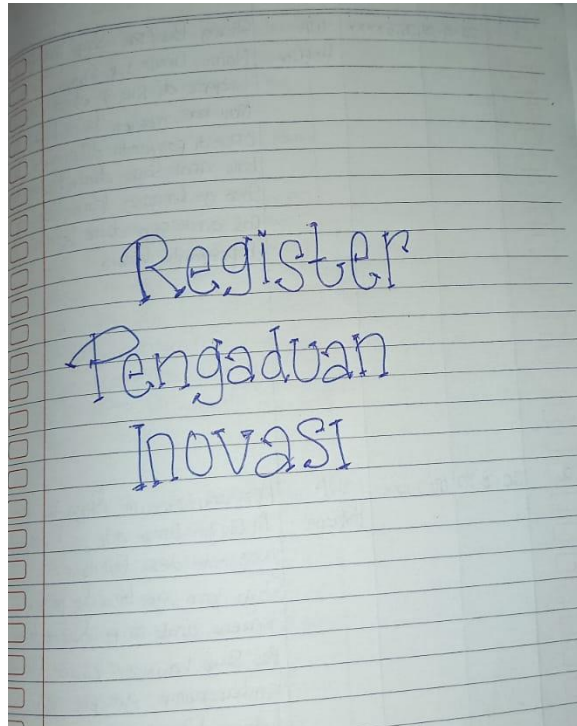 Register
Pengaduan
Inovasi